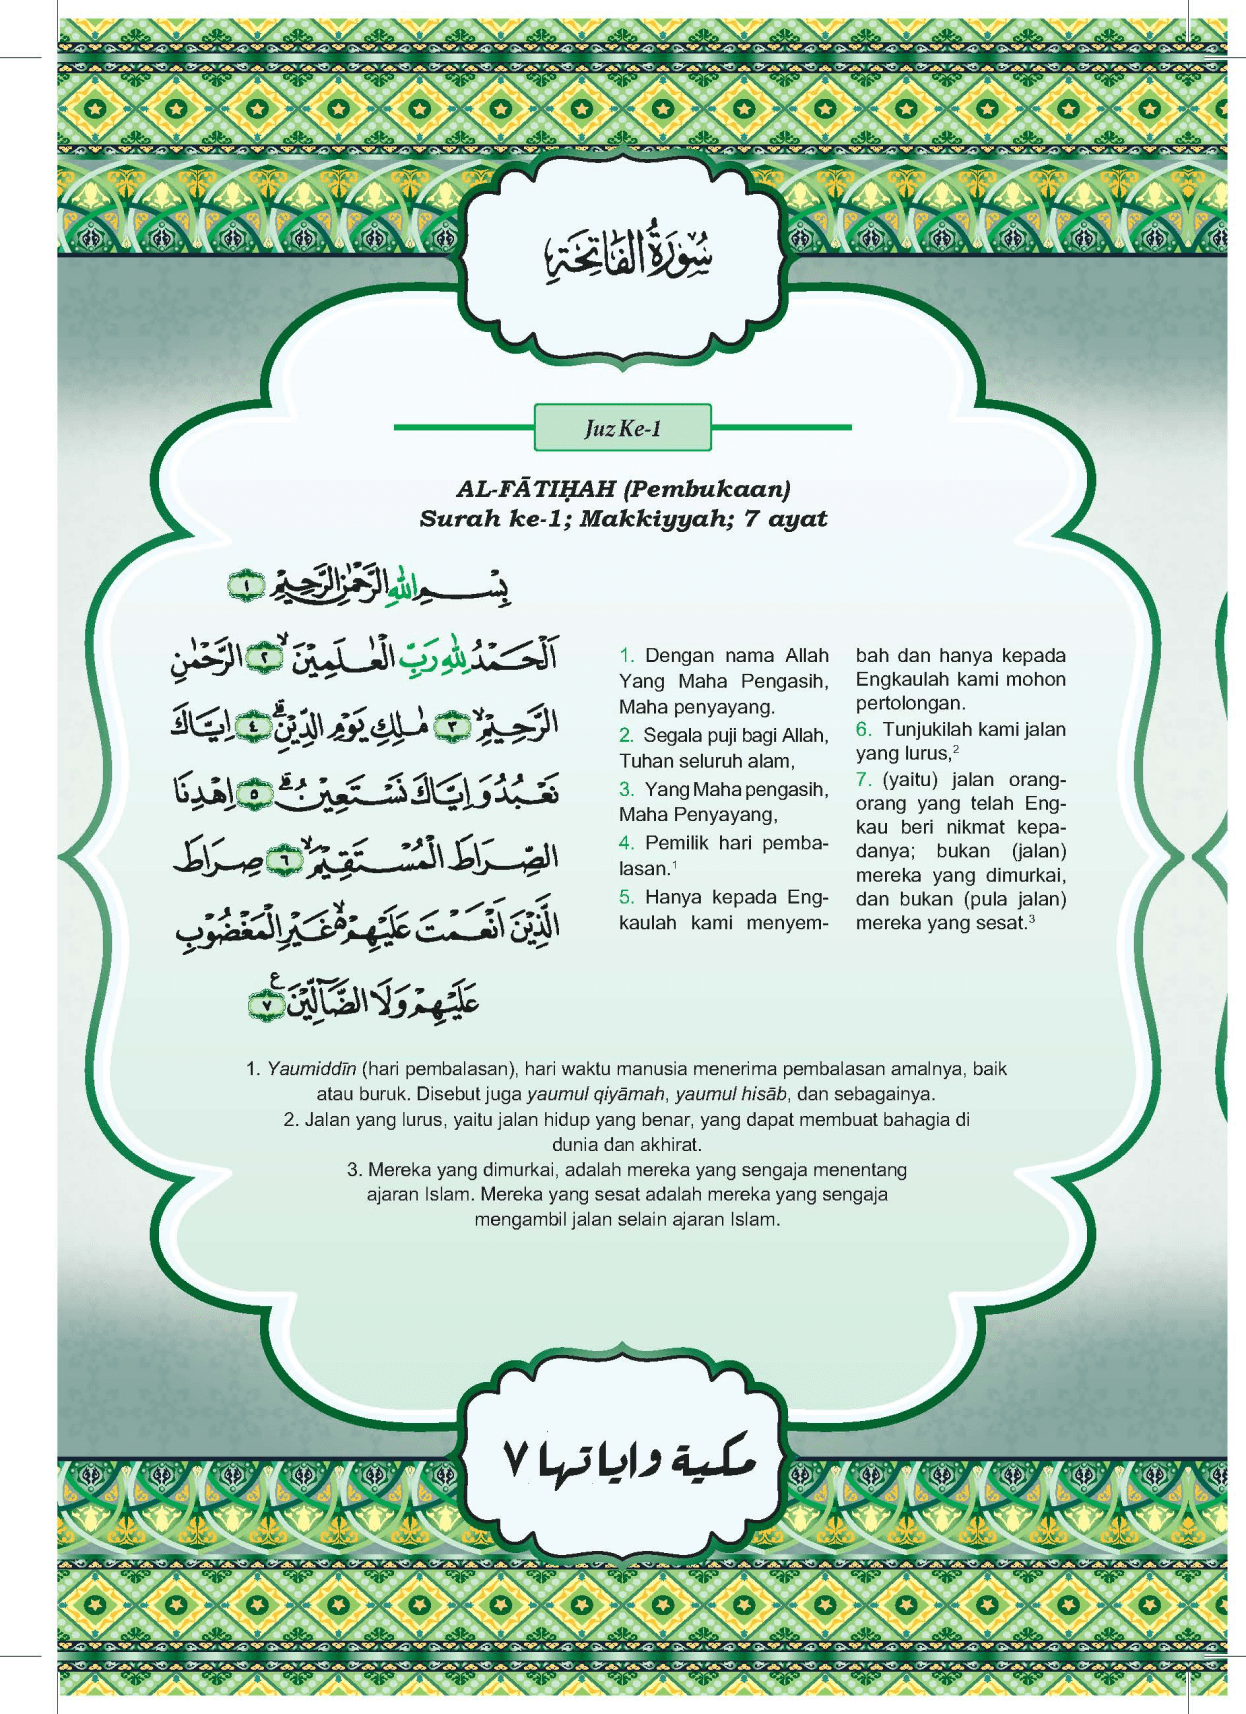 سُوْرَةُ الْفَاتِحَةِ
Juz Ke-1
AL-FĀTIḤAH (Pembukaan)
Surah ke-1; Makkiyyah; 7 ayat
بِسْمِ اللّٰهِ الرَّحْمٰنِ الرَّحِيْمِ ١
اَلْحَمْدُ لِلّٰهِ رَبِّ الْعٰلَمِيْنَۙ ٢ الرَّحْمٰنِ
الرَّحِيْمِۙ ٣ مٰلِكِ يَوْمِ الدِّيْنِۗ ٤ اِيَّاكَ
نَعْبُدُ وَاِيَّاكَ نَسْتَعِيْنُۗ ٥ اِهْدِنَا
الصِّرَاطَ الْمُسْتَقِيْمَۙ ٦ صِرَاطَ
الَّذِيْنَ اَنْعَمْتَ عَلَيْهِمْ ەۙ غَيْرِ الْمَغْضُوْبِ
عَلَيْهِمْ وَلَا الضَّاۤلِّيْنَ ࣖ ٧
1. Dengan nama Allah
Yang Maha Pengasih,
Maha penyayang.
2. Segala puji bagi Allah,
Tuhan seluruh alam,
3. Yang Maha pengasih,
Maha Penyayang,
4. Pemilik hari pemba-
lasan.¹
5. Hanya kepada Eng-
kaulah kami menyem-
bah dan hanya kepada
Engkaulah kami mohon
pertolongan.
6. Tunjukilah kami jalan
yang lurus,²
7. (yaitu) jalan orang-
orang yang telah Eng-
kau beri nikmat kepa-
danya; bukan (jalan)
mereka yang dimurkai,
dan bukan (pula jalan)
mereka yang sesat.³
1. Yaumiddīn (hari pembalasan), hari waktu manusia menerima pembalasan amalnya, baik
atau buruk. Disebut juga yaumul qiyāmah, yaumul hisāb, dan sebagainya.
2. Jalan yang lurus, yaitu jalan hidup yang benar, yang dapat membuat bahagia di
dunia dan akhirat.
3. Mereka yang dimurkai, adalah mereka yang sengaja menentang
ajaran Islam. Mereka yang sesat adalah mereka yang sengaja
mengambil jalan selain ajaran Islam.
مكية واياتها ٧